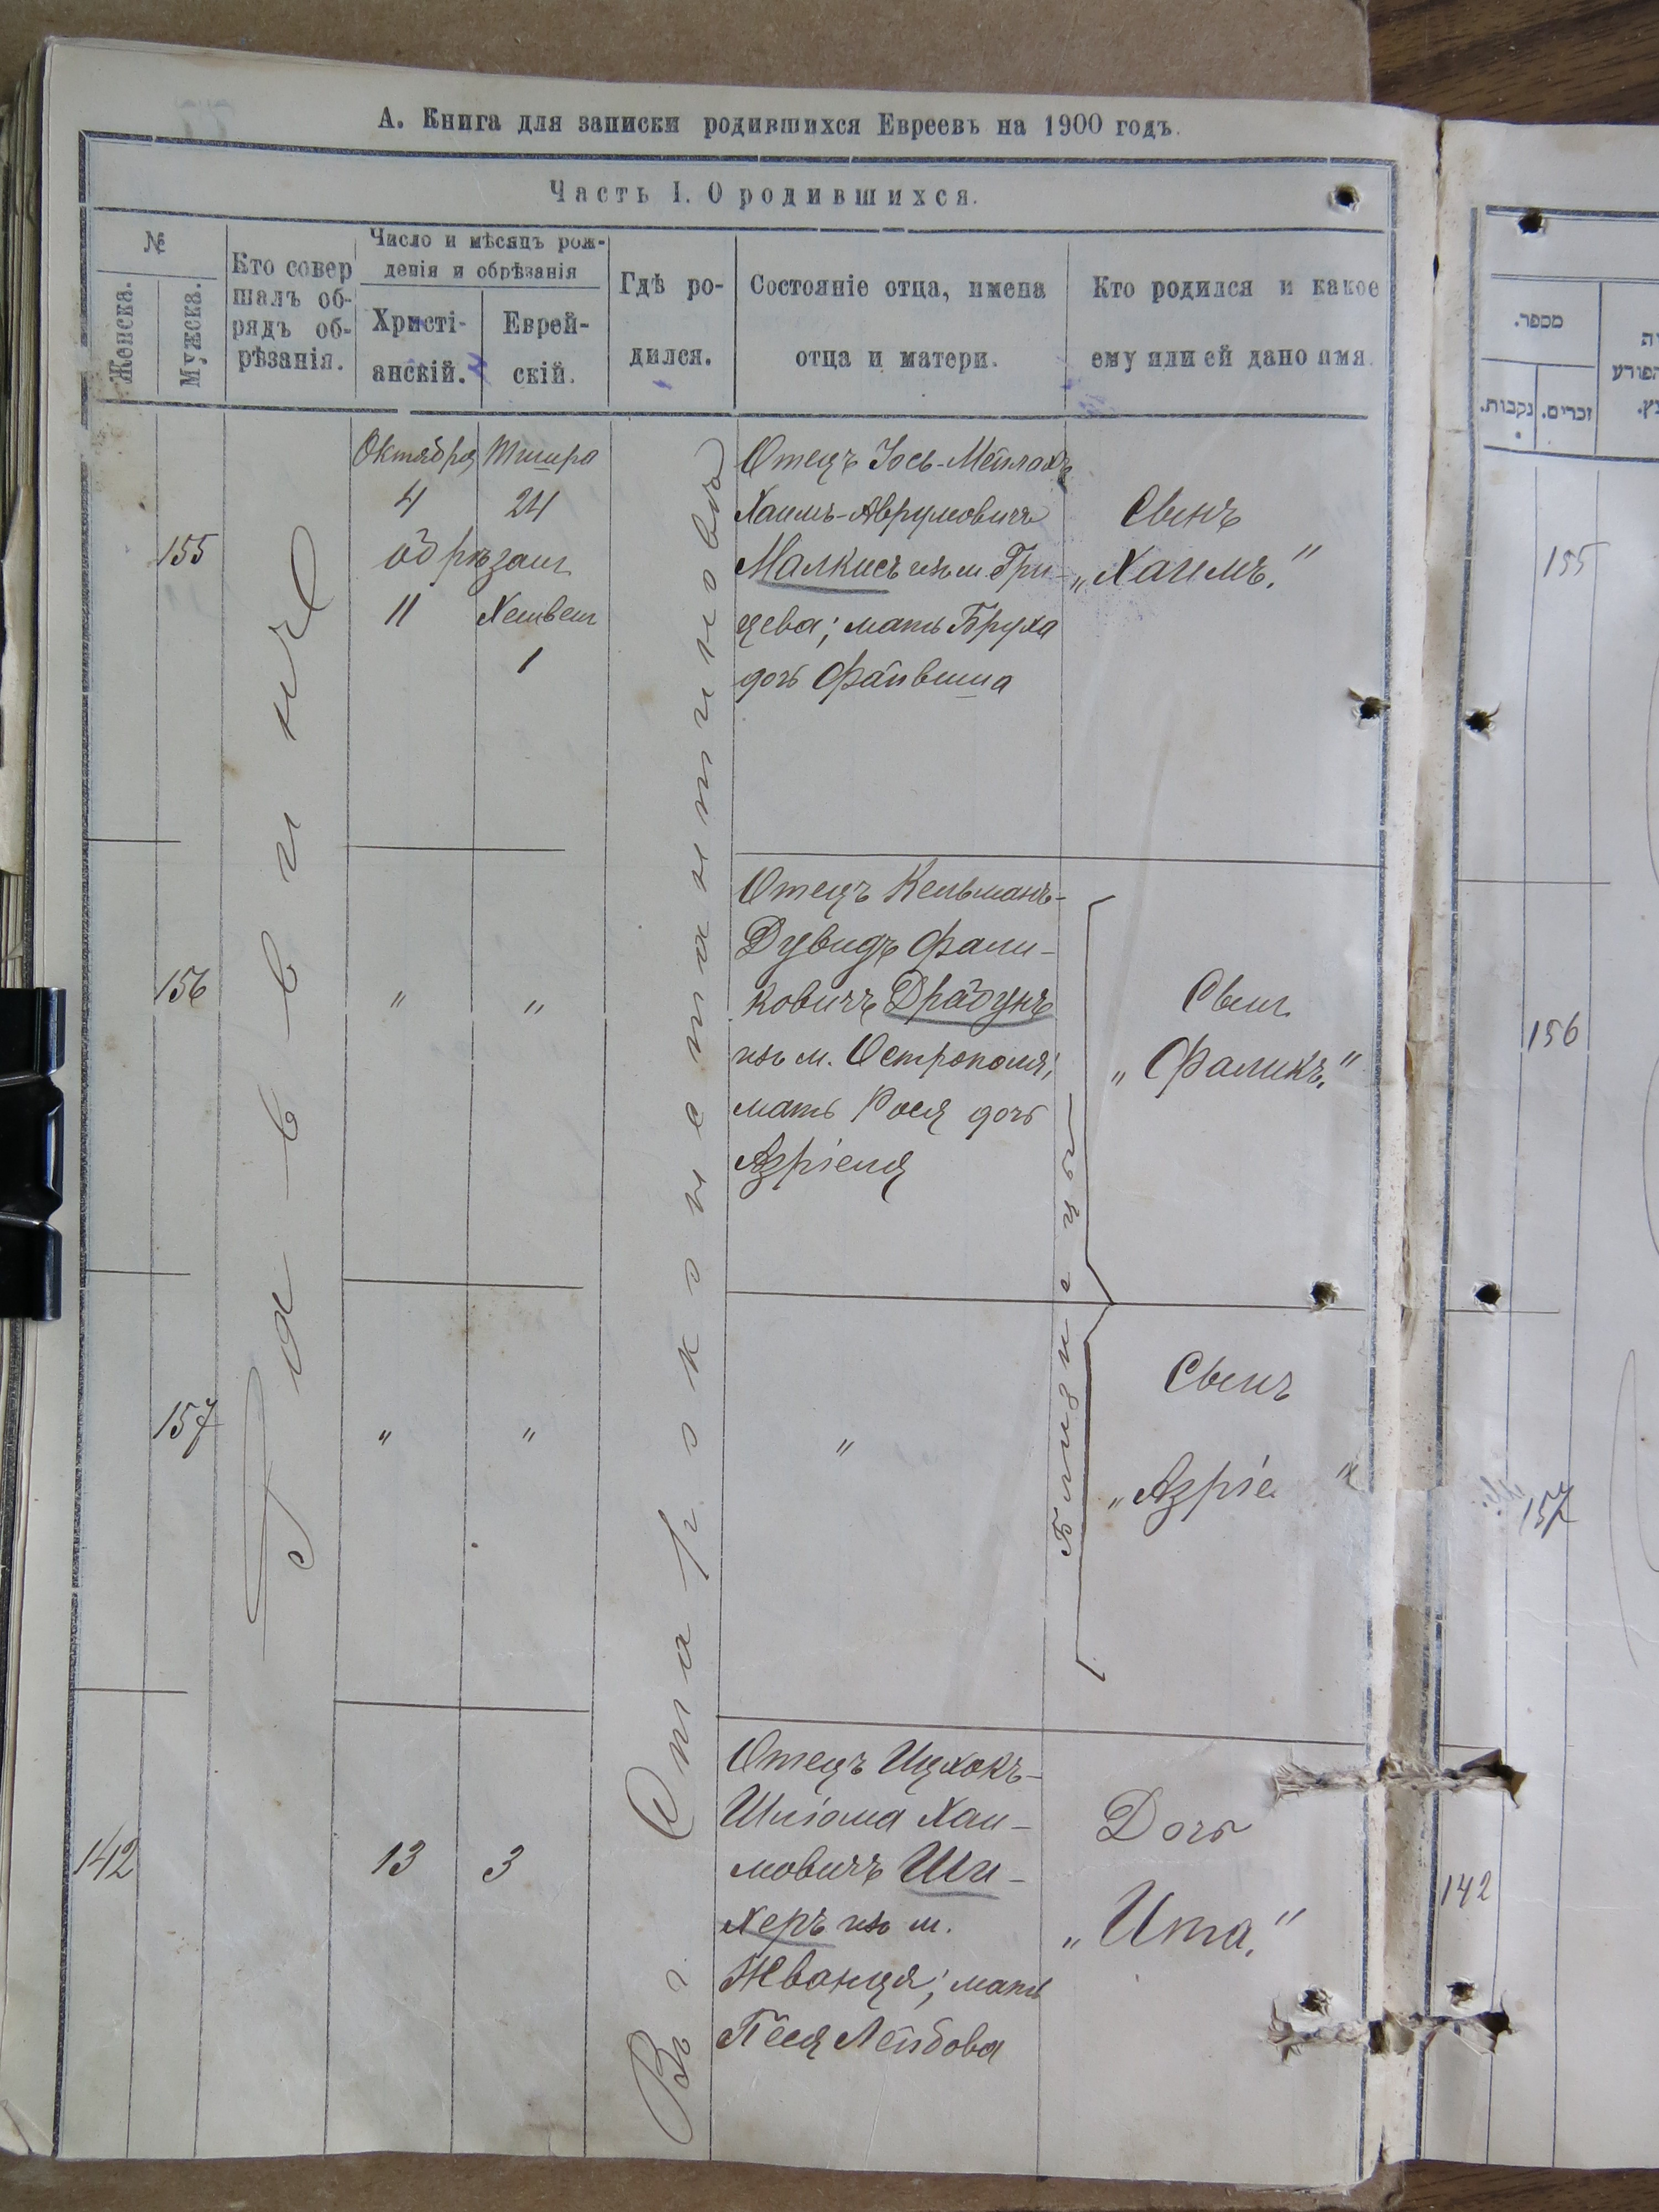 А. Книга для записки родившихся Евреевъ на 1900 годъ.
Часть I. О родившихся.
№
Женска.
Мужска.
Кто совер
шалъ об-
рядъ об-
рѣзанія.
Число и мѣсяцъ рож-
денія и обрѣзанія
Христі-
анскій.
Еврей-
скій.
Гдѣ ро-
дился.
Состояніе отца, имена
отца и матери.
Кто родился и какое
ему или ей дано имя.
Раввинъ
Въ г. Староконстантиновѣ
155
Октября
4
обрѣзан
11
Тишра
24
Хешвен
1
Отецъ Іось-Мейлохъ
Хаимъ-Аврумовичъ
Малкисъ изъ м. Гри-
цева; мать Бруха
дочь Файвиша
Сынъ
„Хаимъ."
156
"
"
Отецъ Кельманъ-
Дувидъ Фали-
ковичъ Драбунъ
изъ м. Острополя;
мать Рося дочь
Азріеля
Сынъ
„Фаликъ."
Близнецы
157
"
"
"
Сынъ
„Азріе
142
13
3
Отецъ Ицхокъ-
Шліома Хаи-
мовичъ Ши-
херъ изъ м.
Жванца; мать
Песя Лейбова
Дочь
„Ита."
מספר.
נקבות.
זכרים.
155
156
157
142